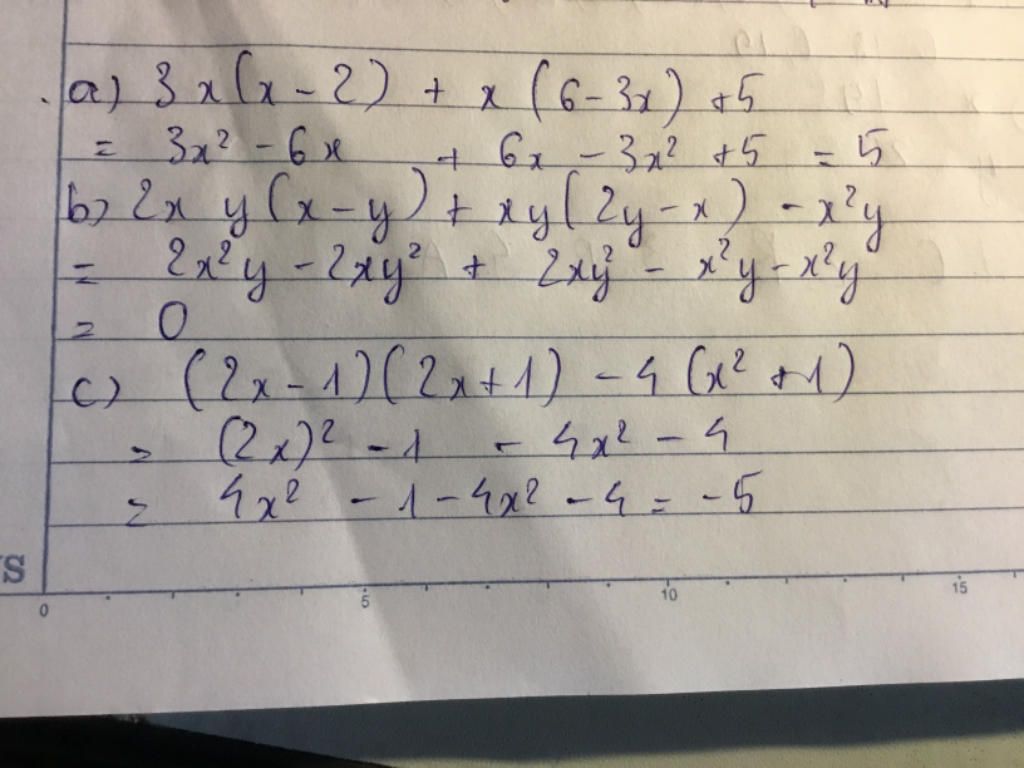 a) 3x(x-2) + x(6-3x) +5
= 3x² - 6x + 6x - 3x² +5 = 5
b) 2xy(x-y) + xy(2y-x) - x²y
= 2x²y - 2xy² + 2xy² - x²y - x²y
= 0
c) (2x-1)(2x+1) - 4(x²+1)
= (2x)² - 1 - 4x² - 4
= 4x² - 1 - 4x² - 4 = -5
S
0 5 10 15